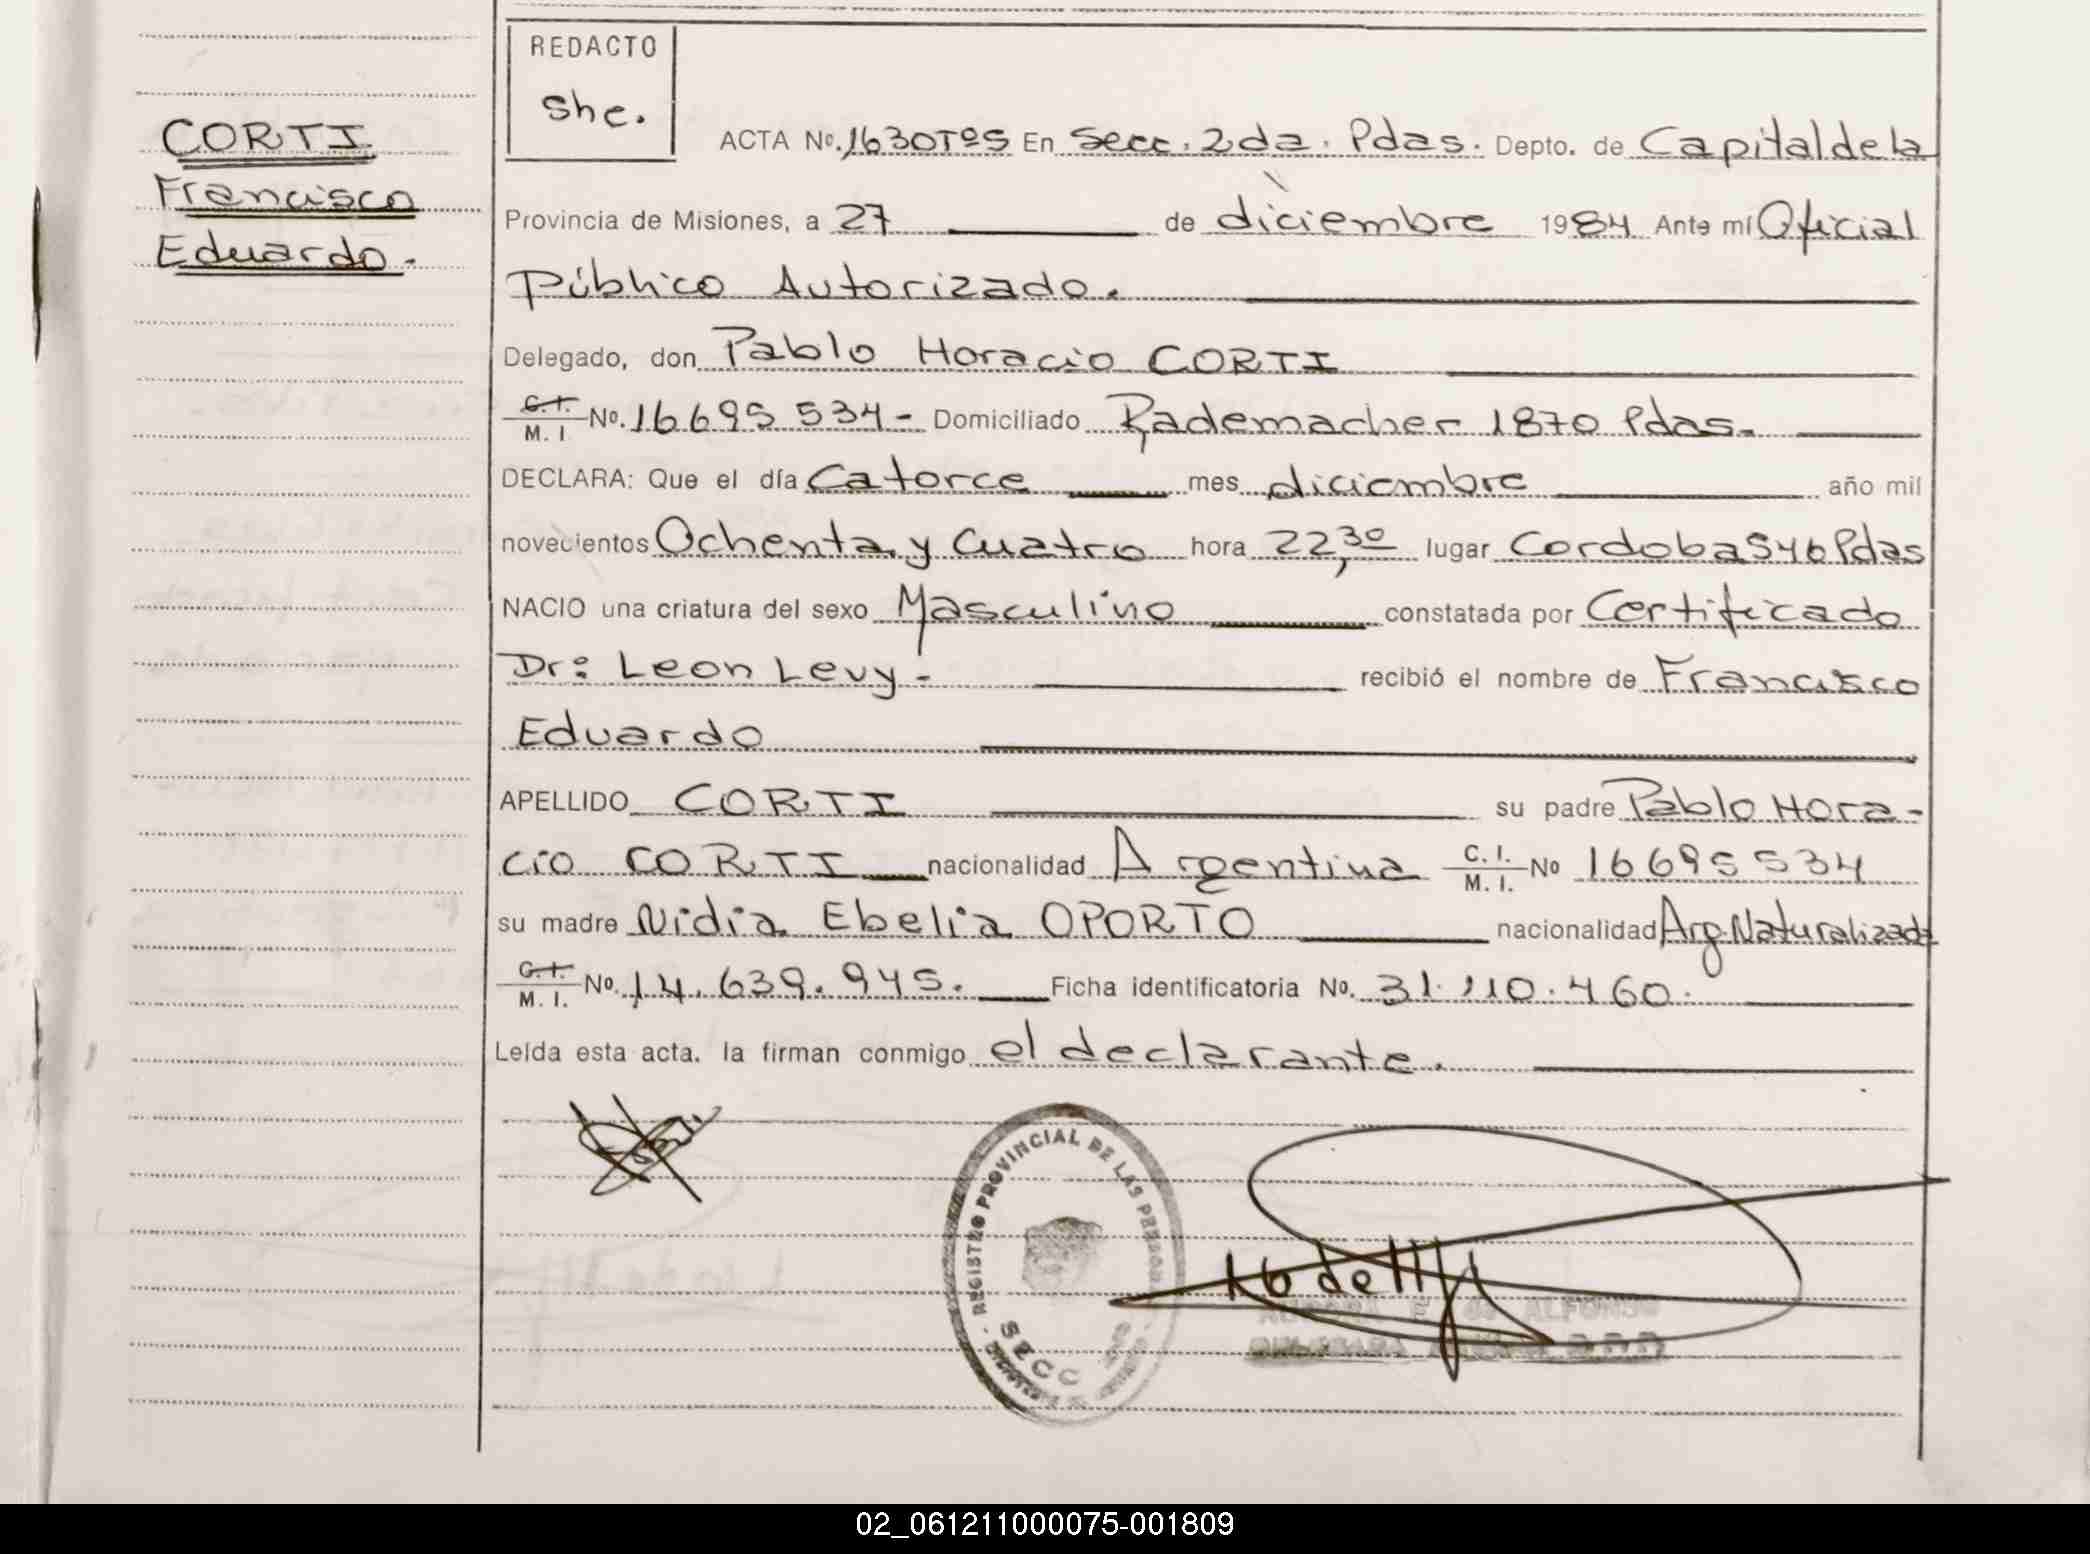 REDACTO
She.
CORTI
Francisco
Eduardo.
ACTA No. 1630 Tº5 En Secc. 2da. Pdas. Depto. de Capital de la
Provincia de Misiones, a 27 de diciembre 1984 Ante mí Oficial
Público Autorizado.
Delegado, don Pablo Horacio CORTI
C.I. M. I No. 16695534- Domiciliado Rademacher 1870 Pdas.
DECLARA: Que el día Catorce mes diciembre año mil
novecientos Ochenta y Cuatro hora 22,30 lugar Cordoba 546 Pdas
NACIO una criatura del sexo Masculino constatada por Certificado
Dr: Leon Levy- recibió el nombre de Francisco
Eduardo
APELLIDO CORTI su padre Pablo Hora-
cio CORTI nacionalidad Argentina C. I. M. I. No 16695534
su madre Nidia Ebelia OPORTO nacionalidad Arg. Naturalizada
C.I. M. I. No. 14.639.945. Ficha identificatoria No. 31.110.460.
Leída esta acta, la firman conmigo el declarante.
REGISTRO PROVINCIAL DE LAS PERSONAS
SECC
ALFONSO
02_061211000075-001809